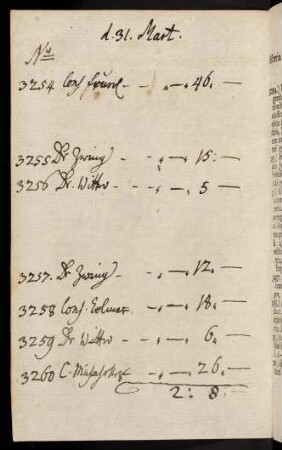 d. 31. Mart.
No
3254 Cons. - - „ — 46. —
3255 Dr Zwing - - „ — 15: —
3256 Dr. Witter - - „ — 5 —
3257. Dr Zwing - - „ — 12. —
3258 Cons. Volmar - „ — 18. —
3259 Dr Witter - - „ — 6. —
3260 C. - „ — 26. —
2: 8: —